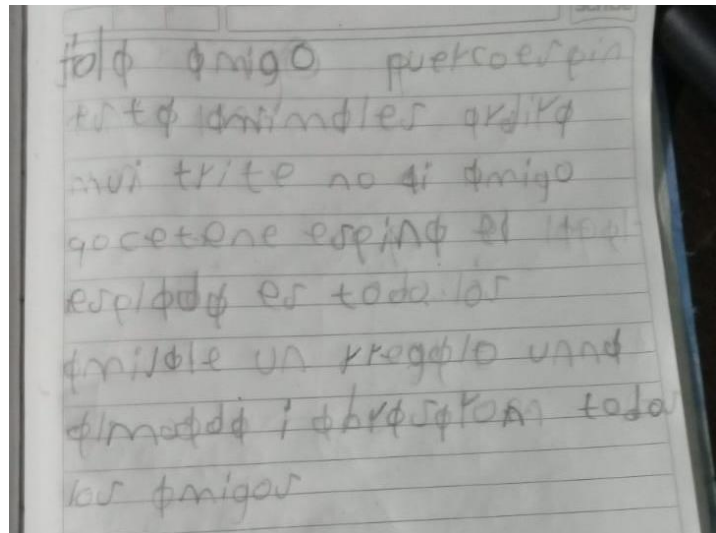 fola amigo puercoespin
esta animales ardira
mui trite no ti amigo
qocetene espina el
esplada es toda los
amisale un rregalo unna
almoada i abrasarom toda
los amigos